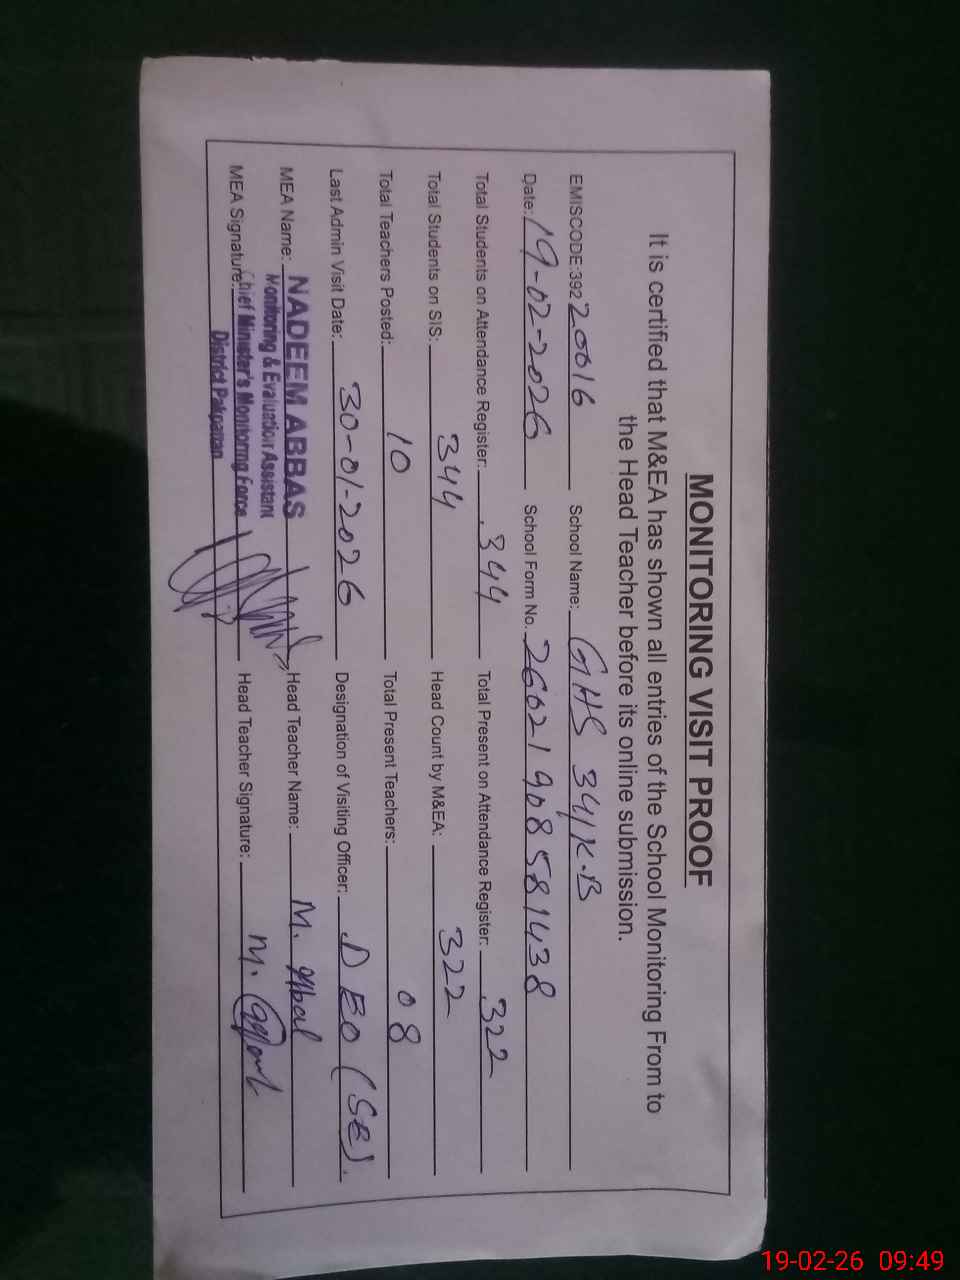 MONITORING VISIT PROOF
It is certified that M&EA has shown all entries of the School Monitoring From to
the Head Teacher before its online submission.
EMISCODE:39220016 School Name: GHS 34/K.B
Date: 19-02-2026 School Form No. 26021908581438
Total Students on Attendance Register: 344 Total Present on Attendance Register: 322
Total Students on SIS: 344 Head Count by M&EA: 322
Total Teachers Posted: 10 Total Present Teachers: 08
Last Admin Visit Date: 30-01-2026 Designation of Visiting Officer: DEO (SE).
MEA Name: NADEEM ABBAS Head Teacher Name: M.
Monitoring & Evaluation Assistant
MEA Signature: Chief Minister's Monitoring Force Head Teacher Signature: M.
District Pakpattan
19-02-26 09:49